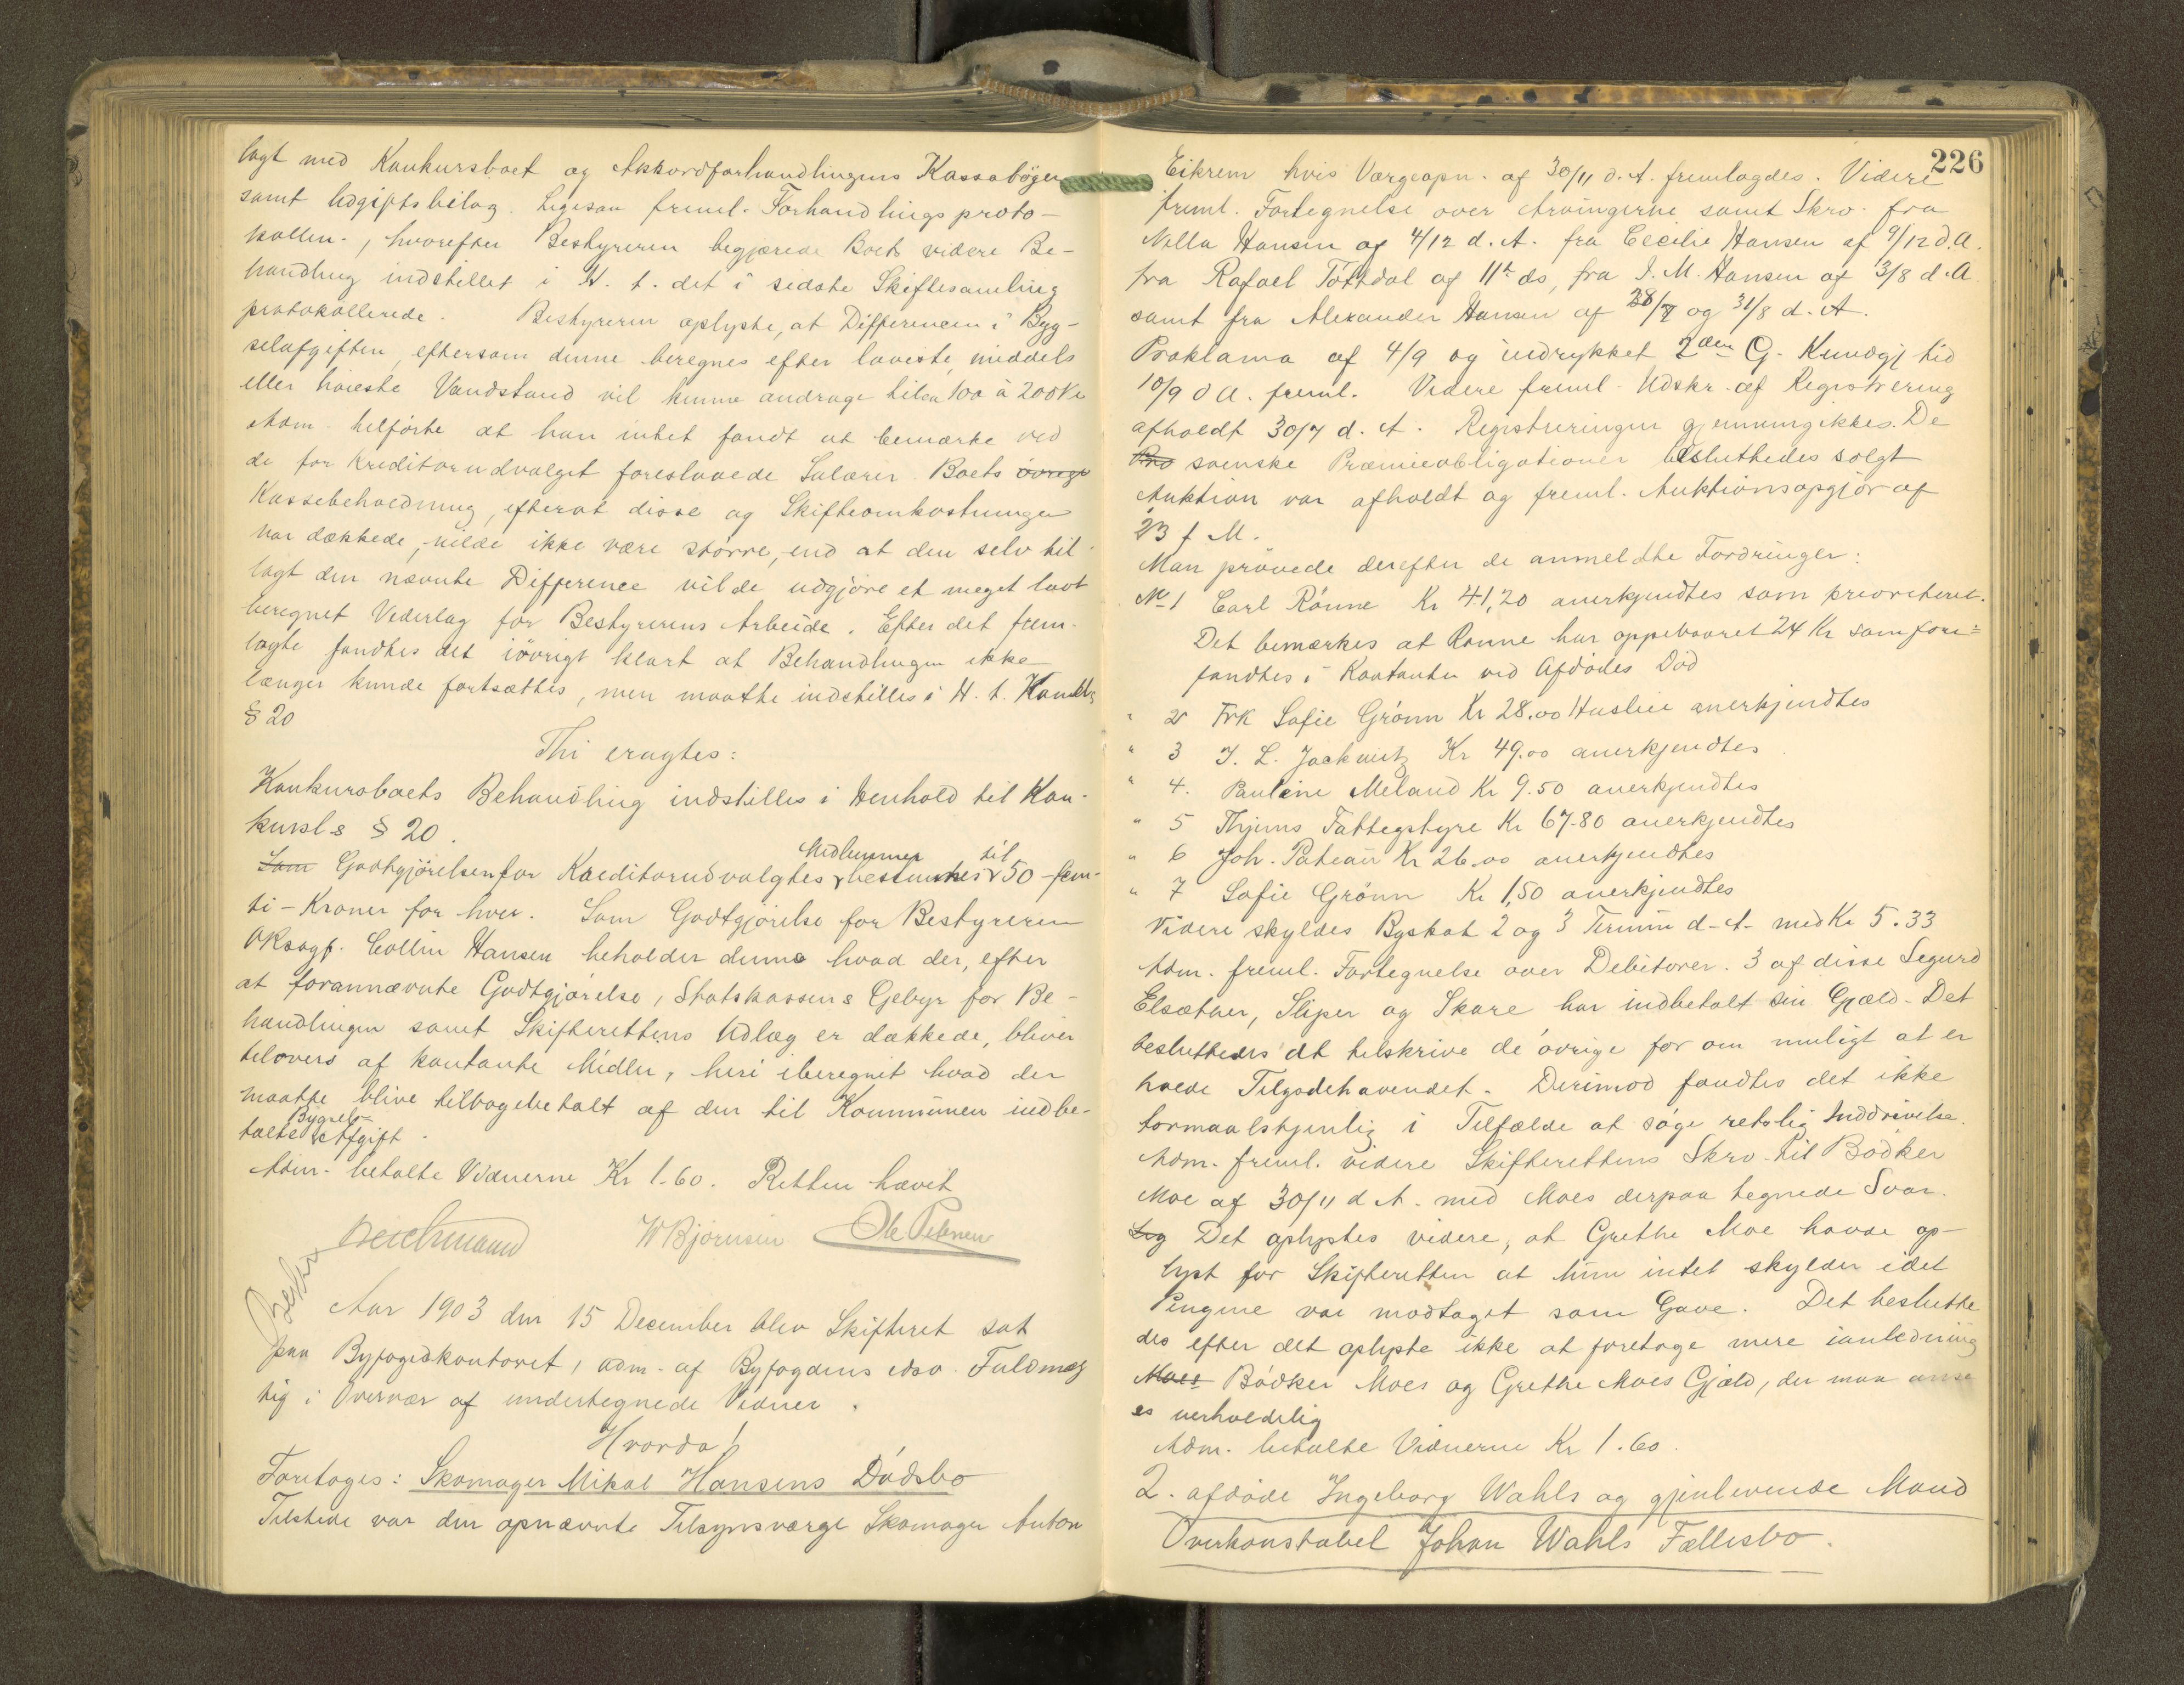 lagt med Konkursboet og Akkordforhandlingens Kassabøger
samt Udgiftsbilag. Ligesaa freml. Forhandlingsproto-
kollen, hvorefter Bestyreren begjærede Boets videre Be-
handling indstillet i H. t. det i sidste Skiftesamling
protokollerede. Bestyreren oplyste, at Differencen i Byg-
selafgiften, eftersom denne beregnes efter laveste, middels
eller høieste Vandstand vil kunne andrage til ca 100 à 200 Kr
Adm. tilførte at han intet fandt at bemærke ved
de for Kreditorudvalget foreslaaede Salærer. Boets øvrige
Kassebeholdning, efterat disse og Skifteomkostninger
var dækkede, vilde ikke være større, end at den selv til-
lagt den nævnte Difference vilde udgjøre et meget lavt
beregnet Vederlag for Bestyrerens Arbeide. Efter det frem-
lagte fandtes det iøvrigt klart at Behandlingen ikke
længer kunde fortsættes, men maatte indstilles i H. t. Konklv
§ 20
Thi eragtes:
Konkursboets Behandling indstilles i Henhold til Kon-
kursl-s § 20.
Som Godtgjørelsen for Kreditorudvalgtes Medlemmer bestemmes til 50 - fem-
ti - Kroner for hver. Som Godtgjørelse for Bestyreren
ORsagf. Collin Hansen beholder denne hvad der, efter
at forannævnte Godtgjørelse, Statskassens Gebyr for Be-
handlingen samt Skifterettens Udlæg er dækkede, bliver
tilovers af kontante Midler, heri iberegnet hvad der
maatte blive tilbagebetalt af den til Kommunen indbe-
talte Bygsel-Afgift.
Adm. betalte Vidnerne Kr 1.60. Retten hævet
Beichmann W Bjørnsen Ole Petersen
Aar 1903 den 15 December blev Skifteret sat
paa Byfogedkontoret, adm. af Byfogdens edsv. Fuldmæg
tig i Overvær af undertegnede Vidner.
Hvorda!
Foretoges: Skomager Mikal Hansens Dødsbo
Tilstede var den opnævnte Tilsynsværge Skomager Anton
226
Eikrem hvis Værgeopn. af 30/11 d. A. fremlagdes. Videre
freml. Fortegnelse over Arvingerne samt Skrv. fra
Nilla Hansen af 4/12 d. A. fra Cecilie Hansen af 9/12 d. A.
fra Rafael Tøttdal af 11te ds, fra I. M. Hansen af 3/8 d. A.
samt fra Alexander Hansen af 28/7 og 31/8 d. A.
Proklama af 4/9 og indrykket 2den G. Kundgj tid
10/9 d A. freml. Videre freml. Udskr. af Registrering
afholdt 30/7 d. A. Registreringen gjennemgikkes. De
svenske Præmieobligationer besluttedes solgt
Auktion var afholdt og freml. Auktionsopgjør af
23 f M.
Man prøvede derefter de anmeldte Fordringer:
No 1 Carl Rønne Kr 41,20 anerkjendtes som prioriteret.
Det bemærkes at Rønne har oppebaaret 24 Kr som fore-
fandtes i Kontanter ved Afdødes Død
" 2 Frk Sofie Grønn Kr 28.00 Husleie anerkjendtes
" 3 J. L. Jackwitz Kr 49.00 anerkjendtes
" 4. Pauline Meland Kr 9.50 anerkjendtes
" 5 Thjems Fattegstyre Kr 67.80 anerkjendtes
" 6 Joh. Kr 26.00 anerkjendtes
" 7 Sofie Grønn Kr 1,50 anerkjendtes
Videre skyldes Byskat 2 og 3 Termin d. A. med Kr 5.33
Adm. freml. Fortegnelse over Debitorer. 3 af disse Segurd
Elsætner, Sliper og Skare har indbetalt sin Gjæld. Det
besluttedes at tilskrive de øvrige for om muligt at er
holde Tilgodehavendet. Derimod fandtes det ikke
formaalstjenlig i Tilfælde at søge retslig Inddrivelse.
Adm. freml. videre Skifterettens Skrv. til Bødker
Moe af 30/11 d. A. med Moes derpaa tegnede Svar.
Det oplystes videre, at Grethe Moe havde op-
lyst for Skifteretten at hun intet skylder idet
Pengene var modtaget som Gave. Det beslutte
des efter det oplyste ikke at foretage mere ianledning
Moes Bødker Moes og Grethe Moes Gjæld, der maa anse
es uerholdelig
Adm. betalte Vidnerne Kr 1.60.
2. afdøde Ingeborg Wahls og gjenlevende Mand
Overkonstabel Johan Wahls Fællesbo.